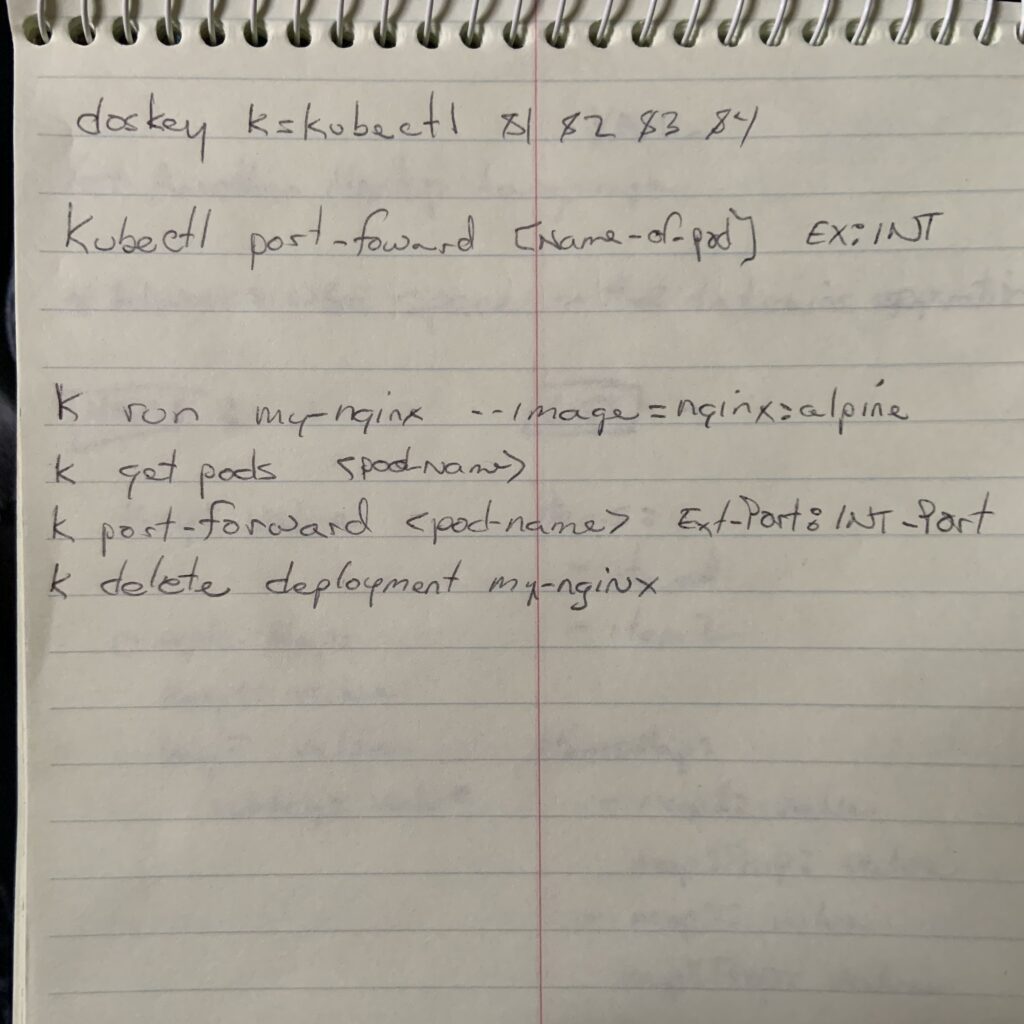 doskey k=kubectl $1 $2 $3 $4
Kubectl port-foward [Name-of-pod] EX:INT
K run my-nginx --image=nginx:alpine
k get pods <pod-name>
k port-forward <pod-name> Ext-Port:INT-Port
k delete deployment my-nginx